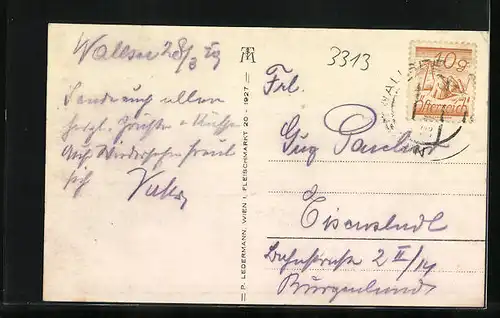 Wallsee 28/3 29
Sende euch allen
herzl. Grüße + Küsse
Auf Wiedersehen freut
sich
P. LEDERMANN, WIEN I, FLEISCHMARKT 20 - 1927
3313
10g
Österreich
Frl.
Eisenstadt
Bahnstraße 2 II/14
Burgenland